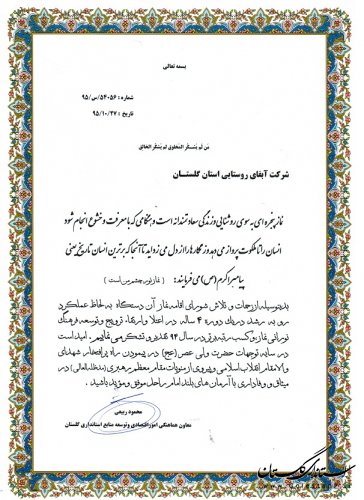 بسمه تعالی
شماره : ۵۴۰۵۶/س/۹۵
تاریخ : ۹۵/۱۰/۲۷
مَن لَم يَشكُرِ المَخلوق لَم يَشكُرِ الخالِق
شرکت آبفای روستایی استان گلستــان
نماز پنجره ای به سوی روشنایی و زندگی سعادتمندانه است و هنگامی که با معرفت و خشوع انجام شود
انسان را تا ملکوت پرواز می دهد و زنگارها را از دل می زداید تا آنجا که برترین انسان تاریخ یعنی
پیامبر اکرم (ص) می فرمایند: ( نماز نور چشم من است )
بدینوسیله از زحمات و تلاش شورای اقامه نماز آن دستگاه به لحاظ عملکرد
رو به رشد در یک دوره ۴ ساله در اعتلا و ارتقاء، ترویج و توسعه فرهنگ
نورانی نماز و کسب رتبه برتر در سال ۹۴ تقدیر و تشکر می نماییم. امید است
در سایه توجهات حضرت ولی عصر (عج) در پیمودن راه پر افتخار شهدای
والامقام انقلاب اسلامی و پیروی از منویات مقام معظم رهبری (مدظله العالی) در
میثاق و وفاداری با آرمان های بلند امام راحل موفق و مؤید باشید.
محمود ربیعی
معاون هماهنگی امور اقتصادی و توسعه منابع استانداری گلستان
استانداری گلستان